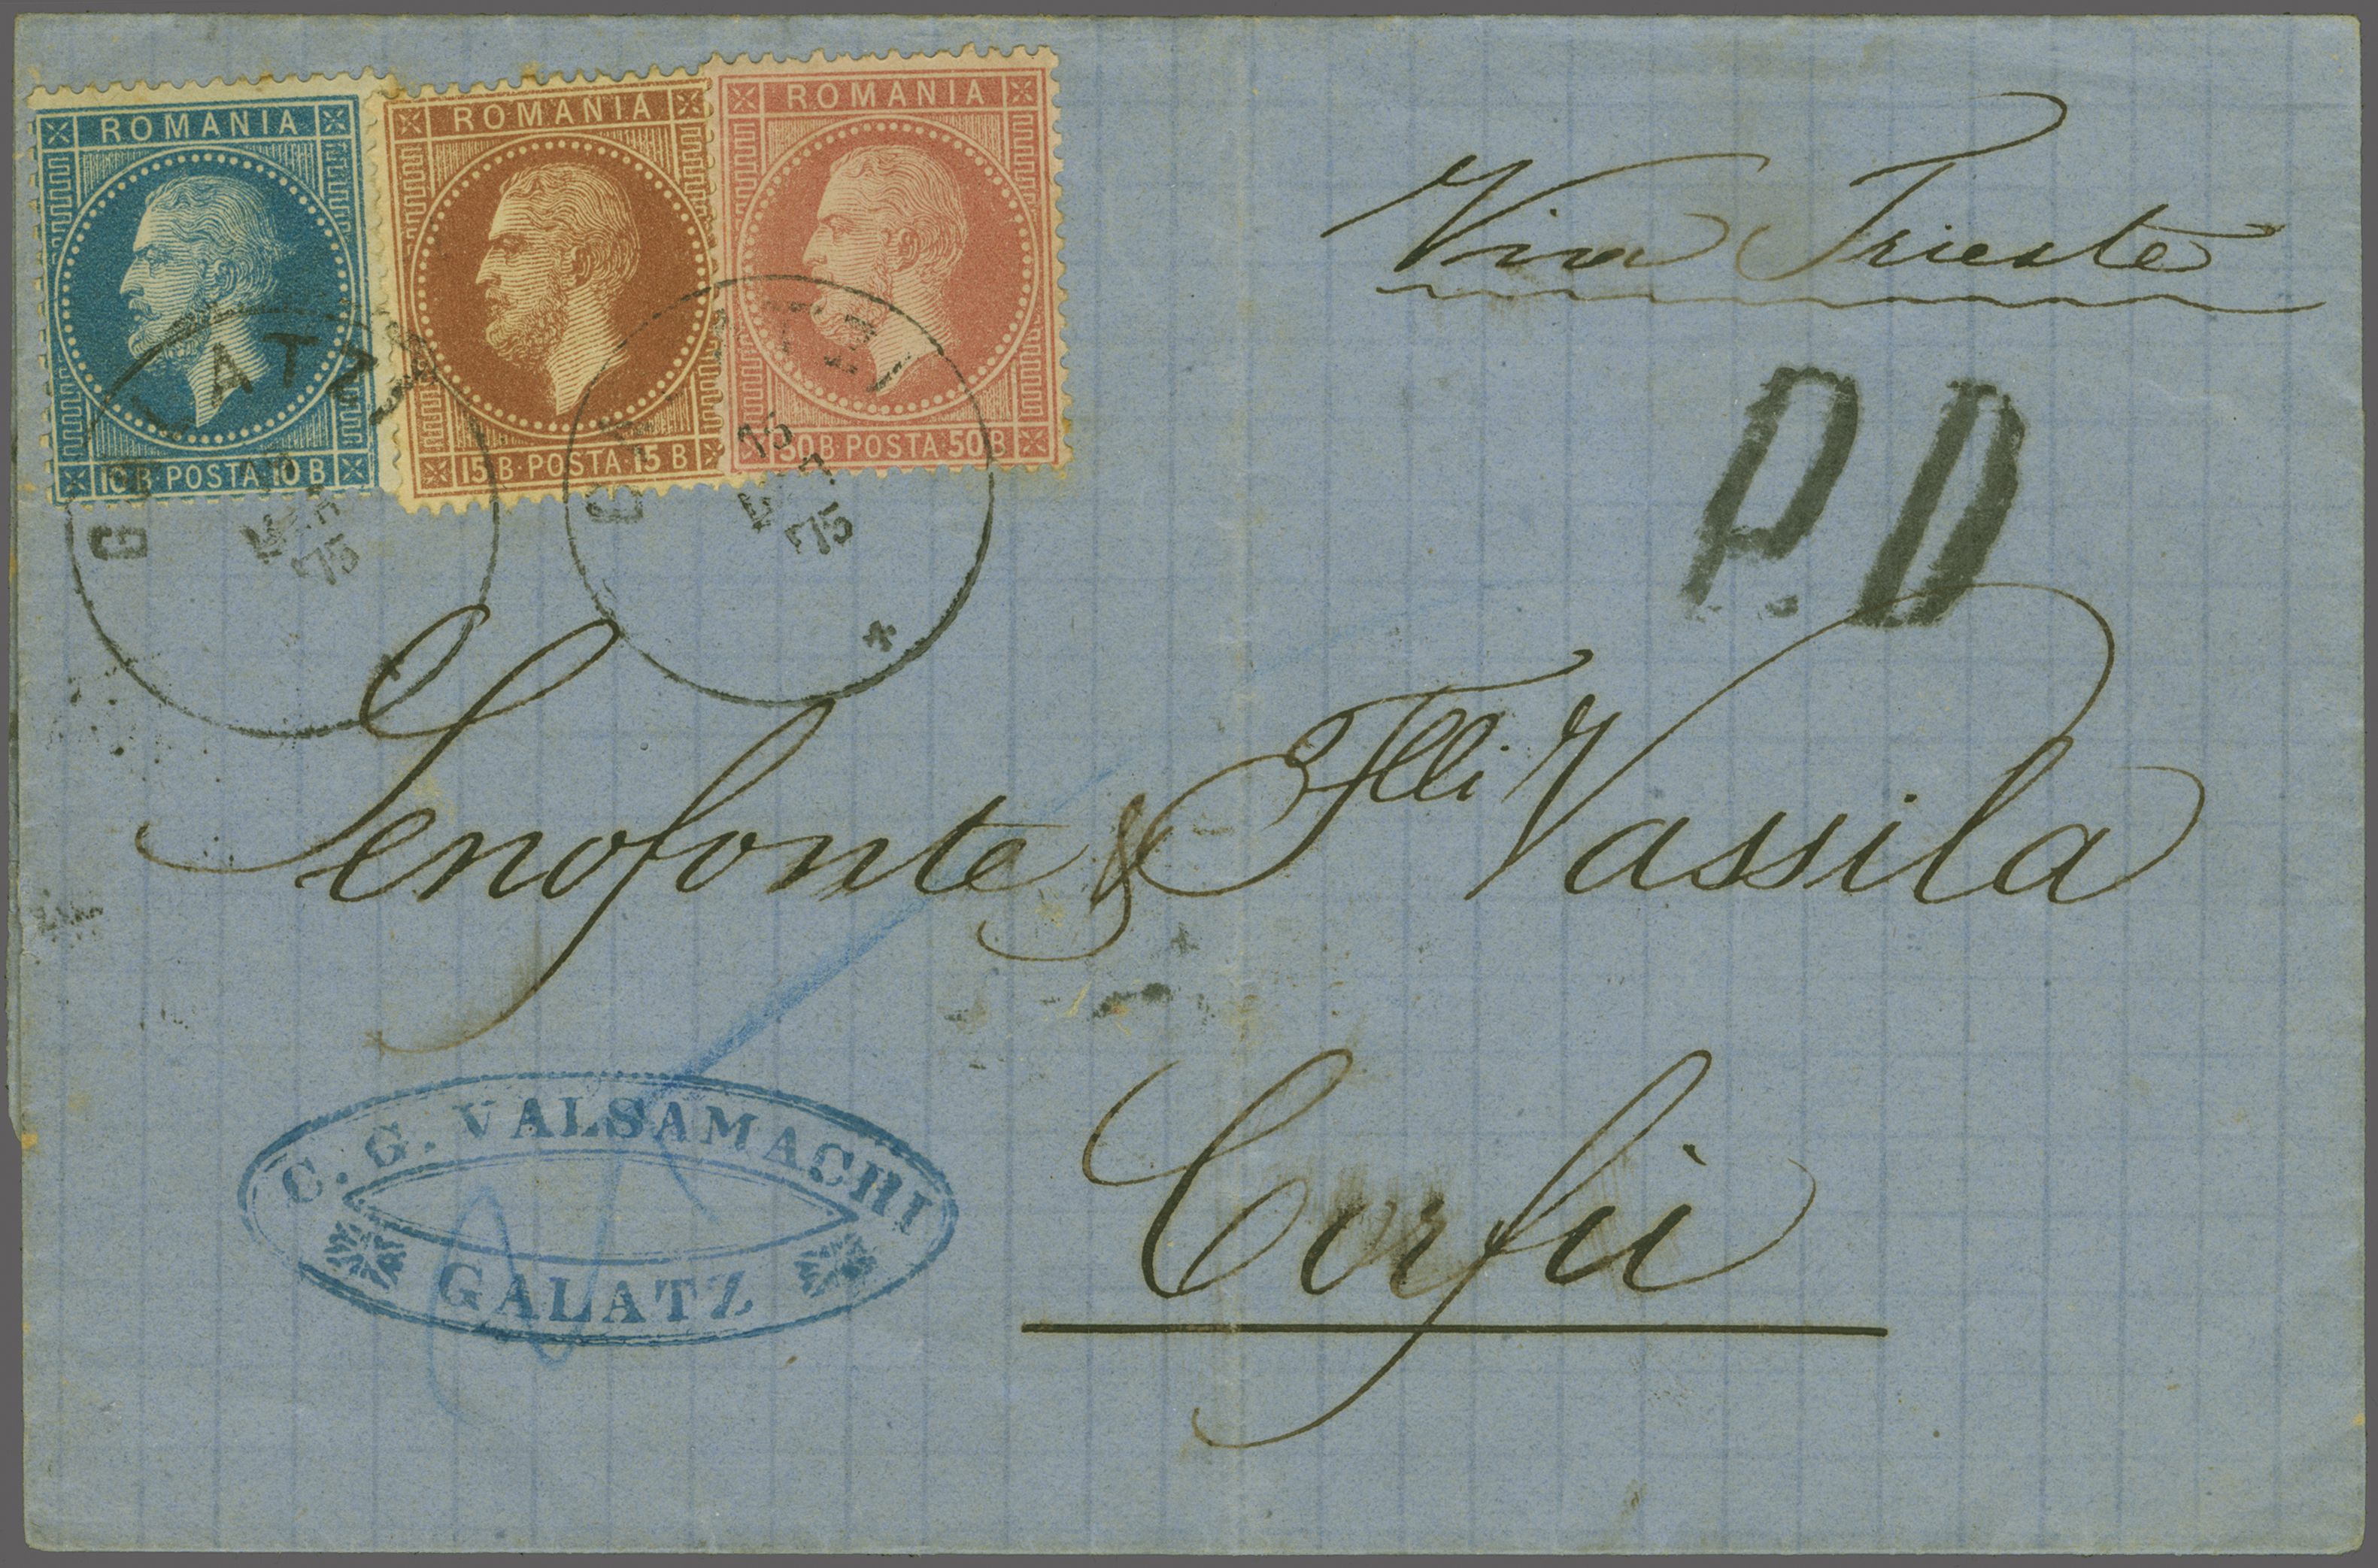 ROMANIA
10 B·POSTA 10 B
ROMANIA
15 B·POSTA 15 B
ROMANIA
50 B·POSTA 50 B
GALATZ
75
GALATZ
16
75
Via Trieste
P.D
Senofonte & Flli Vassila
Corfù
C. G. VALSAMACHI
GALATZ